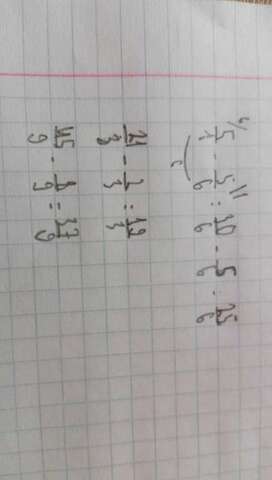 4) 5/1 - 5/6 = 30/6 - 5/6 = 25/6
21/3 - 2/3 = 19/3
45/9 - 8/9 = 37/9